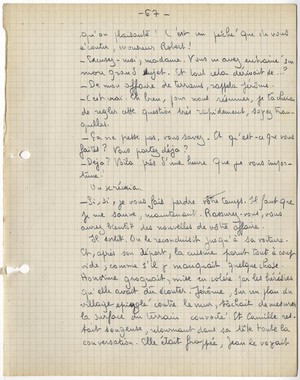 - 67 -
qu'on plaisante ! C'est un péché que de vous
écouter, monsieur Robert !
- Excusez-moi, madame. Vous m'avez entraîné sur
mon grand sujet. Et tout cela dérivait de...?
- De mon affaire de terrains, rappela Jérôme.
- C'est vrai. Eh bien, pour nous résumer, je tâcherai
de régler cette question très rapidement, soyez tran-
quilles.
- Ça ne presse pas, vous savez. Et qu'est-ce que vous
faites ? Vous partez déjà ?
- Déjà ? Voilà près d'une heure que je vous impor-
tune !
Un
- Si, si, je vous fais perdre votre temps. Il faut que
je me sauve, maintenant. Rassurez-vous, vous
aurez bientôt des nouvelles de votre affaire.
Il sortit. On le reconduisit jusqu'à sa voiture.
Et, après son départ, la cuisine parut tout à coup
vide, comme s'il y manquait quelque chose.
Honorine grognait, mise en colère par les
qu'elle avait dû écouter. Jérôme, sur un plan du
village épinglé contre le mur, tâchait de mesurer
la surface du terrain convoité. Et Camille res-
tait songeuse, retournant dans sa tête toute la
conversation. Elle était frappée, Jean le voyait